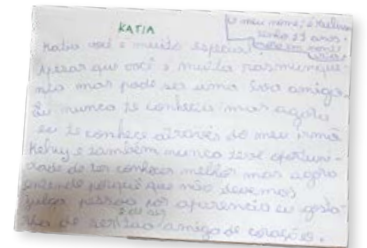 KATIA
o meu nome, é
tenho 11 anos.
Katia você e muito especial
Apesar que você e muita rasmunque-
nta mas pode ser uma boa amiga.
Eu nunca te conheciu mas agora
eu te conhece através do meu irmã
Kehuy e também nunca teve oportuni-
dade de ter conhecer melhor mas agora
entende porquê que não devemos
julga pessoa por aparencia eu gosta-
ria de ser sua amiga de coração.